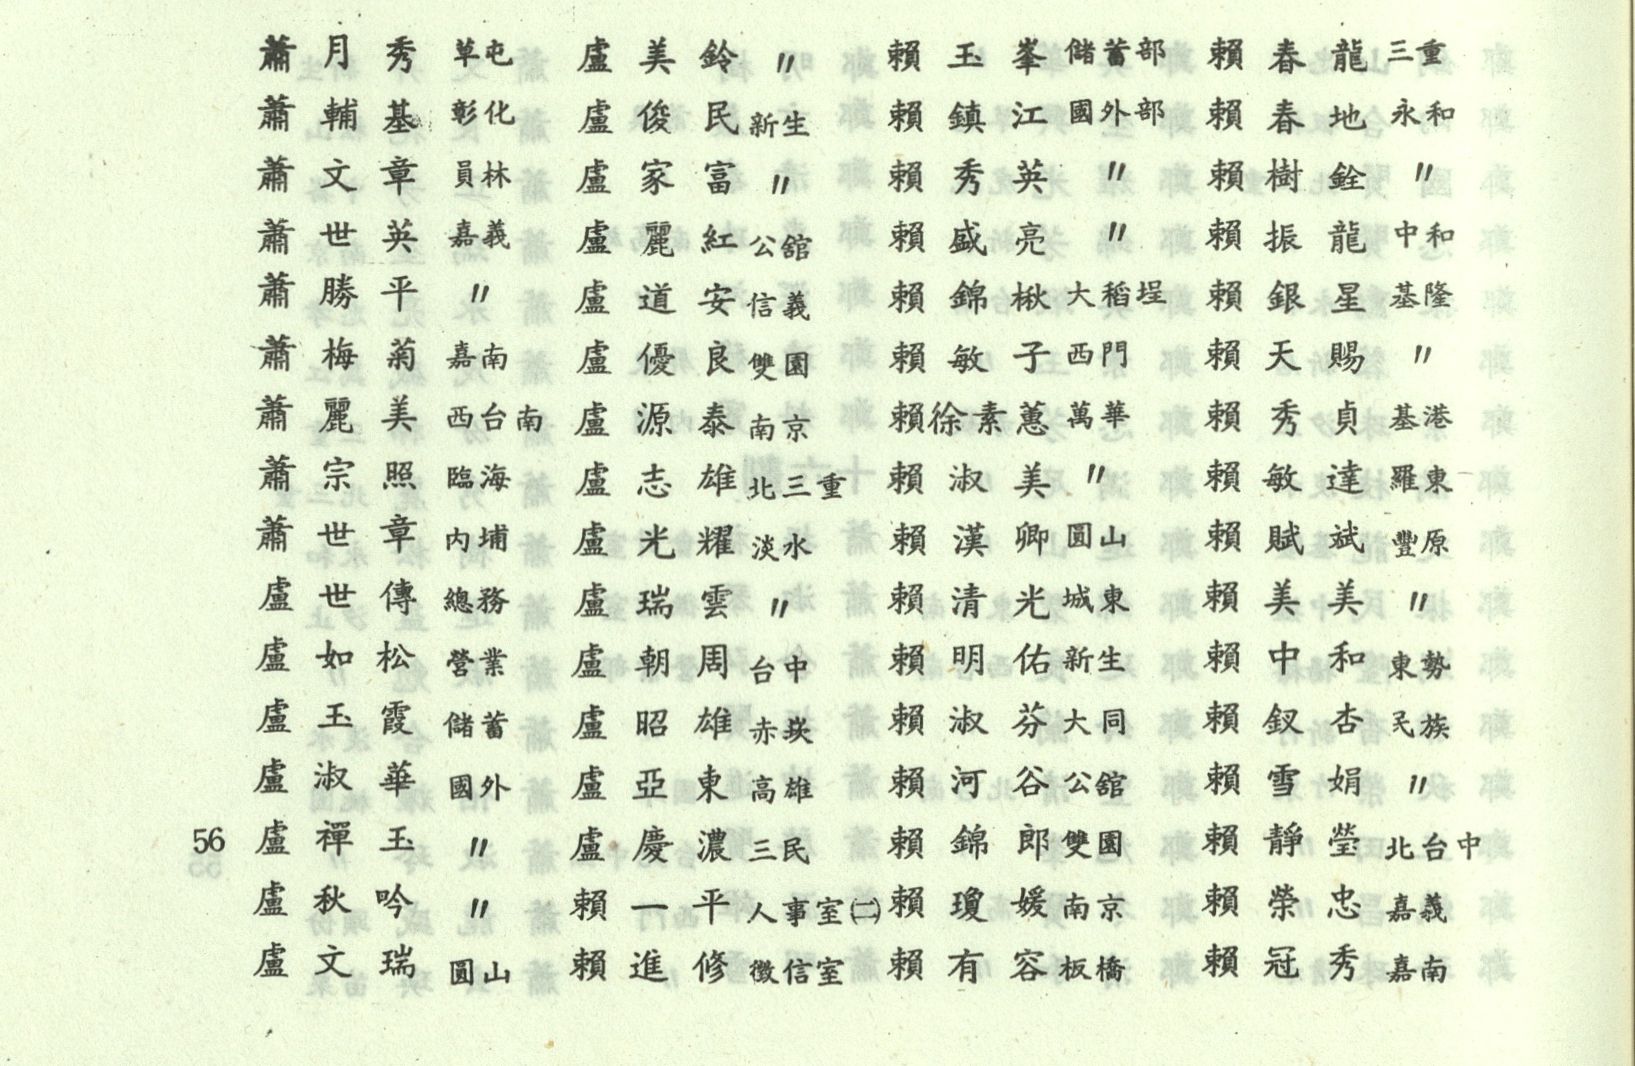 蕭月秀 草屯 盧美鈴 〃 賴玉峯 儲蓄部 賴春龍 三重
蕭輔基 彰化 盧俊民 新生 賴鎮江 國外部 賴春地 永和
蕭文章 員林 盧家富 〃 賴秀英 〃 賴樹銓 〃
蕭世英 嘉義 盧麗紅 公舘 賴盛亮 〃 賴振龍 中和
蕭勝平 〃 盧道安 信義 賴錦楸 大稻埕 賴銀星 基隆
蕭梅菊 嘉南 盧優良 雙園 賴敏子 西門 賴天賜 〃
蕭麗美 西台南 盧源泰 南京 賴徐素蕙 萬華 賴秀貞 基港
蕭宗照 臨海 盧志雄 北三重 賴淑美 〃 賴敏達 羅東
蕭世章 內埔 盧光耀 淡水 賴漢卿 圓山 賴賦斌 豐原
盧世傳 總務 盧瑞雲 〃 賴清光 城東 賴美美 〃
盧如松 營業 盧朝周 台中 賴明佑 新生 賴中和 東勢
盧玉霞 儲蓄 盧昭雄 赤崁 賴淑芬 大同 賴釵杏 民族
盧淑華 國外 盧亞東 高雄 賴河谷 公舘 賴雪娟 〃
56 盧禪玉 〃 盧慶濃 三民 賴錦郎 雙園 賴靜瑩 北台中
盧秋吟 〃 賴一平 人事室㈡ 賴瓊媛 南京 賴榮忠 嘉義
盧文瑞 圓山 賴進修 徵信室 賴有容 板橋 賴冠秀 嘉南